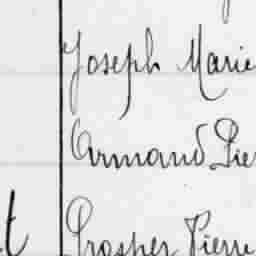 Joseph Marie
Armand Pie
t Prosper Pierre